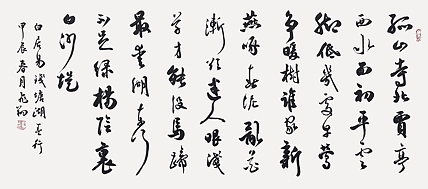 孤山寺北賈亭
西水面初平雲
脚低幾處早鶯
爭暖樹誰家新
燕啄春泥亂花
漸欲迷人眼淺
草才能没馬蹄
最愛湖東行
不足綠楊陰裏
白沙堤
白居易錢塘湖春行
甲辰春月